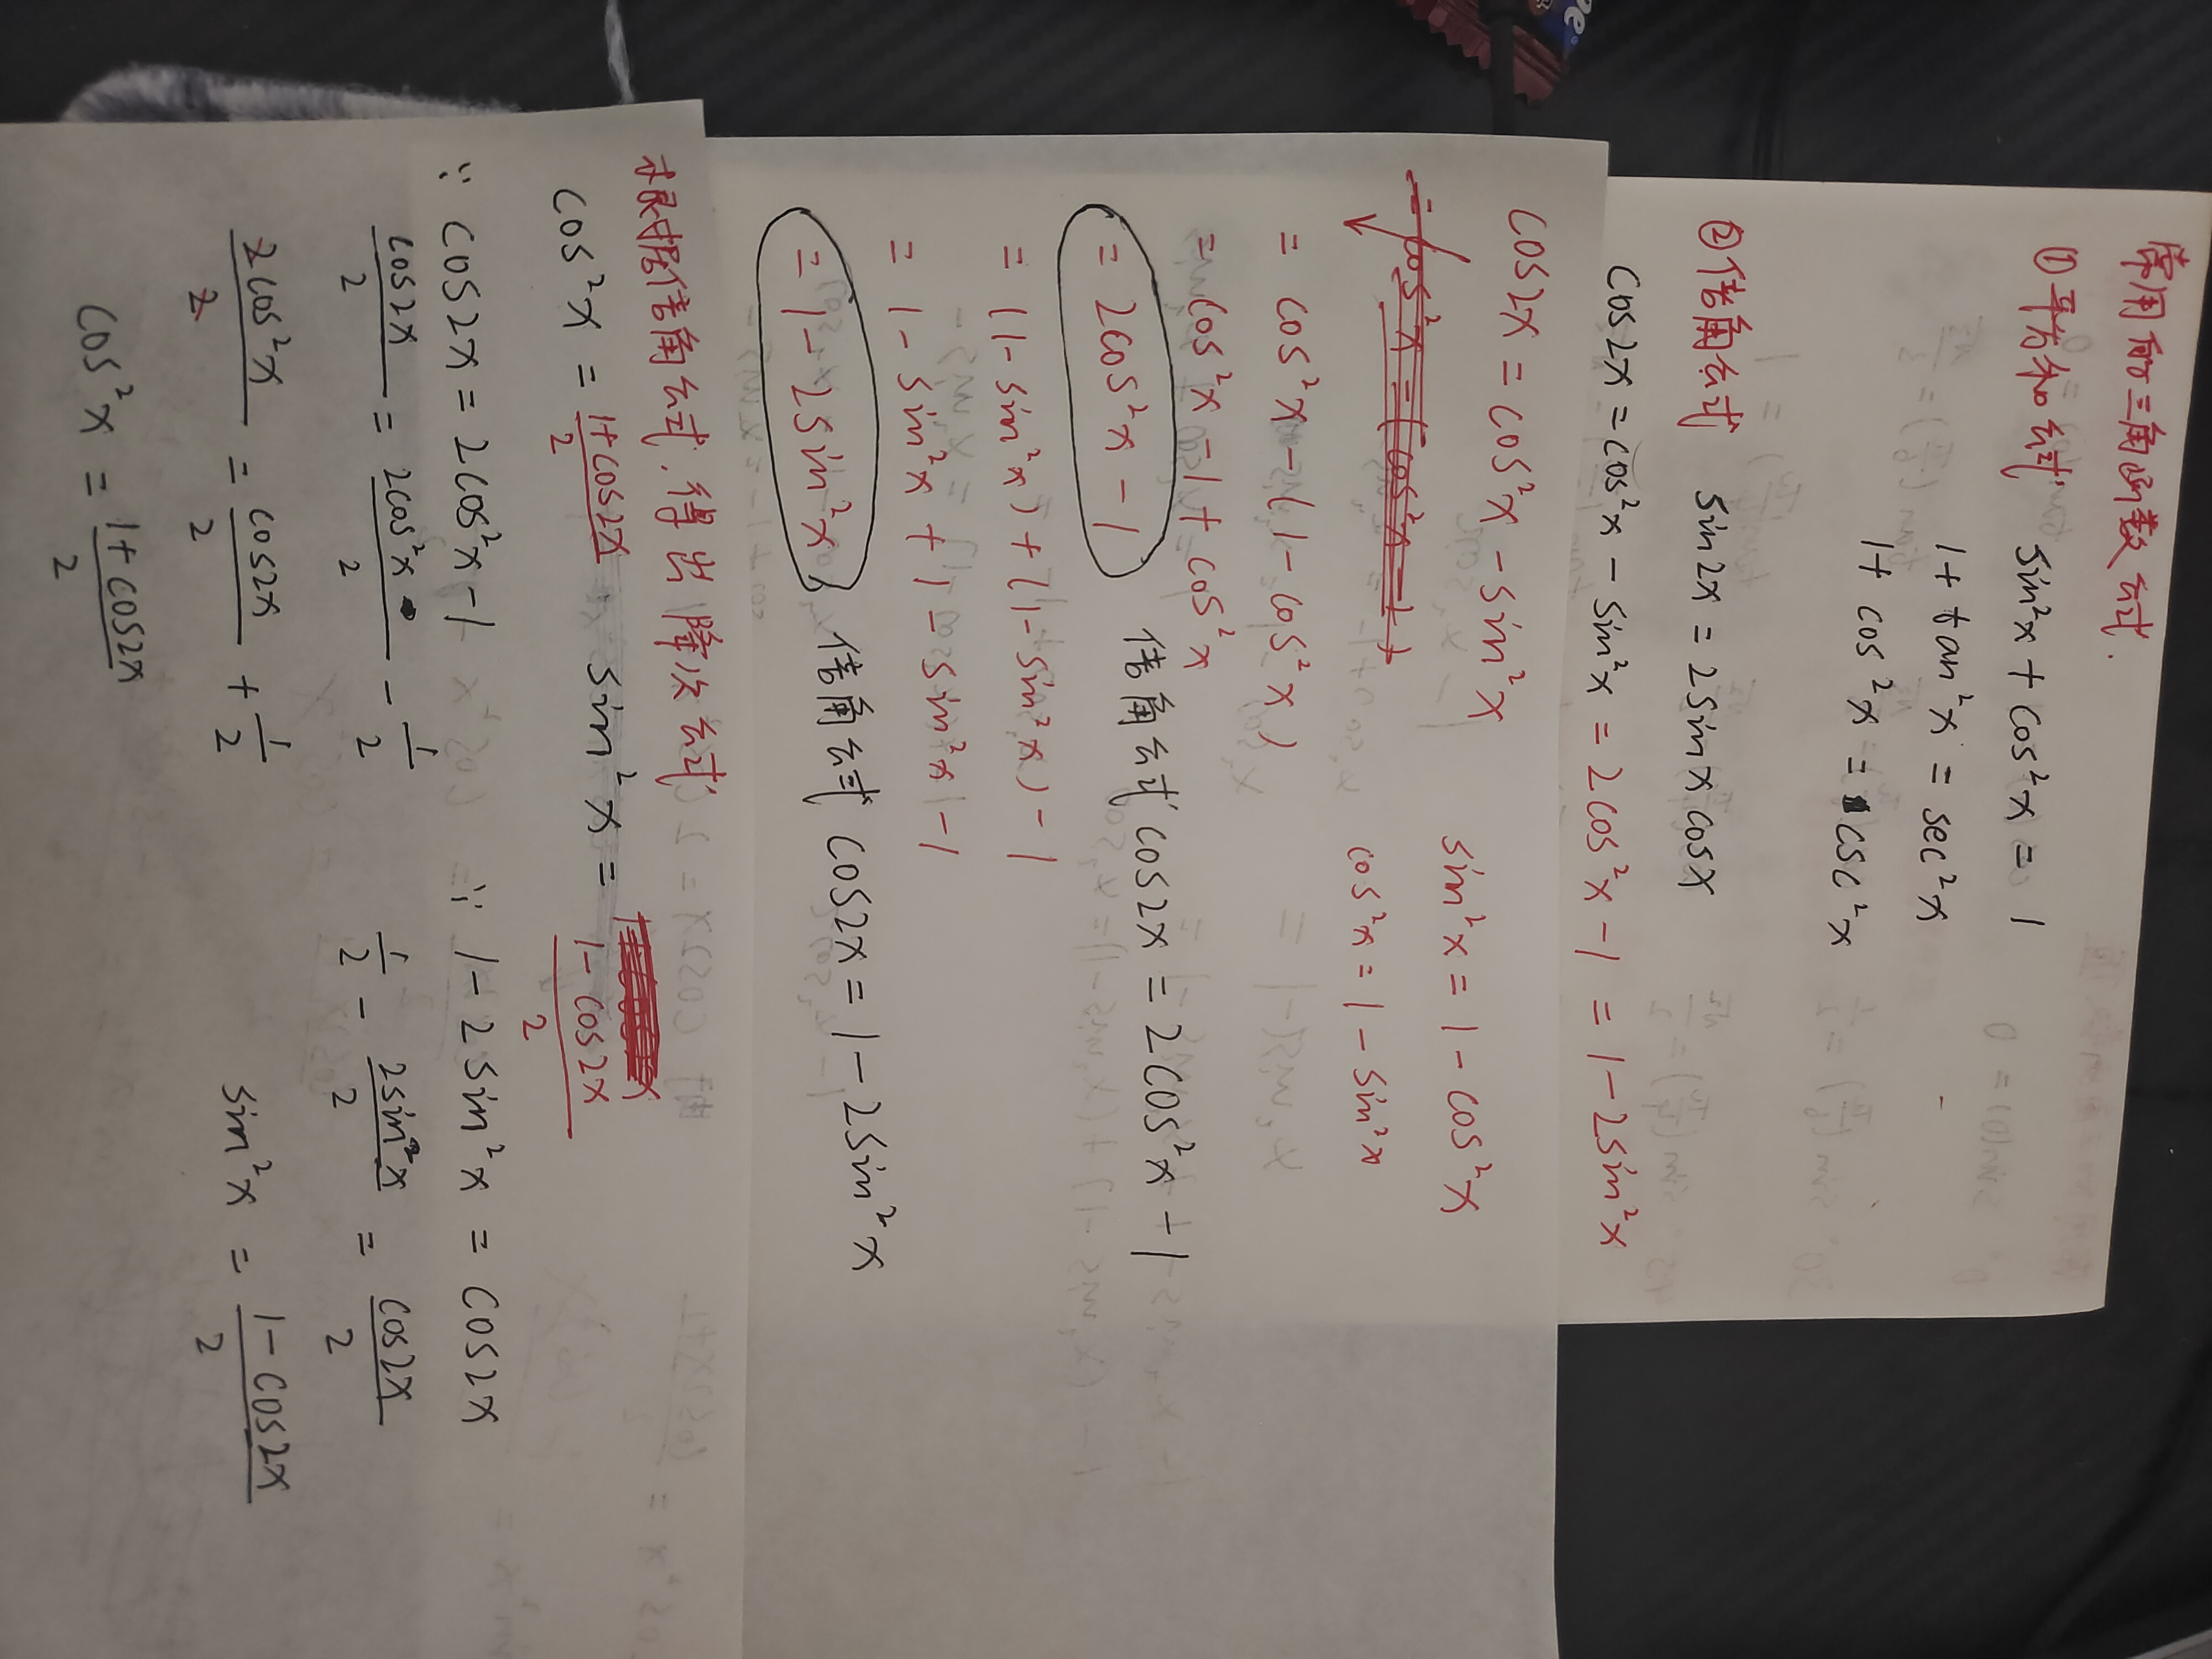 常用的三角函数公式.
①平方和公式 sin²x + cos²x = 1
1 + tan²x = sec²x
1 + cos²x = csc²x
②倍角公式 sin2x = 2sinx cosx
cos2x = cos²x - sin²x = 2cos²x - 1 = 1 - 2sin²x
cos2x = cos²x - sin²x
sin²x = 1 - cos²x
= cos²x - (cos²x - 1)
cos²x = 1 - sin²x
= cos²x - (1 - cos²x)
= cos²x - 1 + cos²x
= 2cos²x - 1 倍角公式 cos2x = 2cos²x - 1
= (1 - sin²x) + (1 - sin²x) - 1
= 1 - sin²x + 1 - sin²x - 1
= 1 - 2sin²x 倍角公式 cos2x = 1 - 2sin²x
根据倍角公式,得出降次公式
cos²x = (1+cos2x)/2 . sin²x = (1-cos2x)/2
∵ cos2x = 2cos²x - 1
cos2x/2 = 2cos²x/2 - 1/2
2cos²x/2 = cos2x/2 + 1/2
cos²x = (1+cos2x)/2
∵ 1 - 2sin²x = cos2x
1/2 - 2sin²x/2 = cos2x/2
sin²x = (1-cos2x)/2